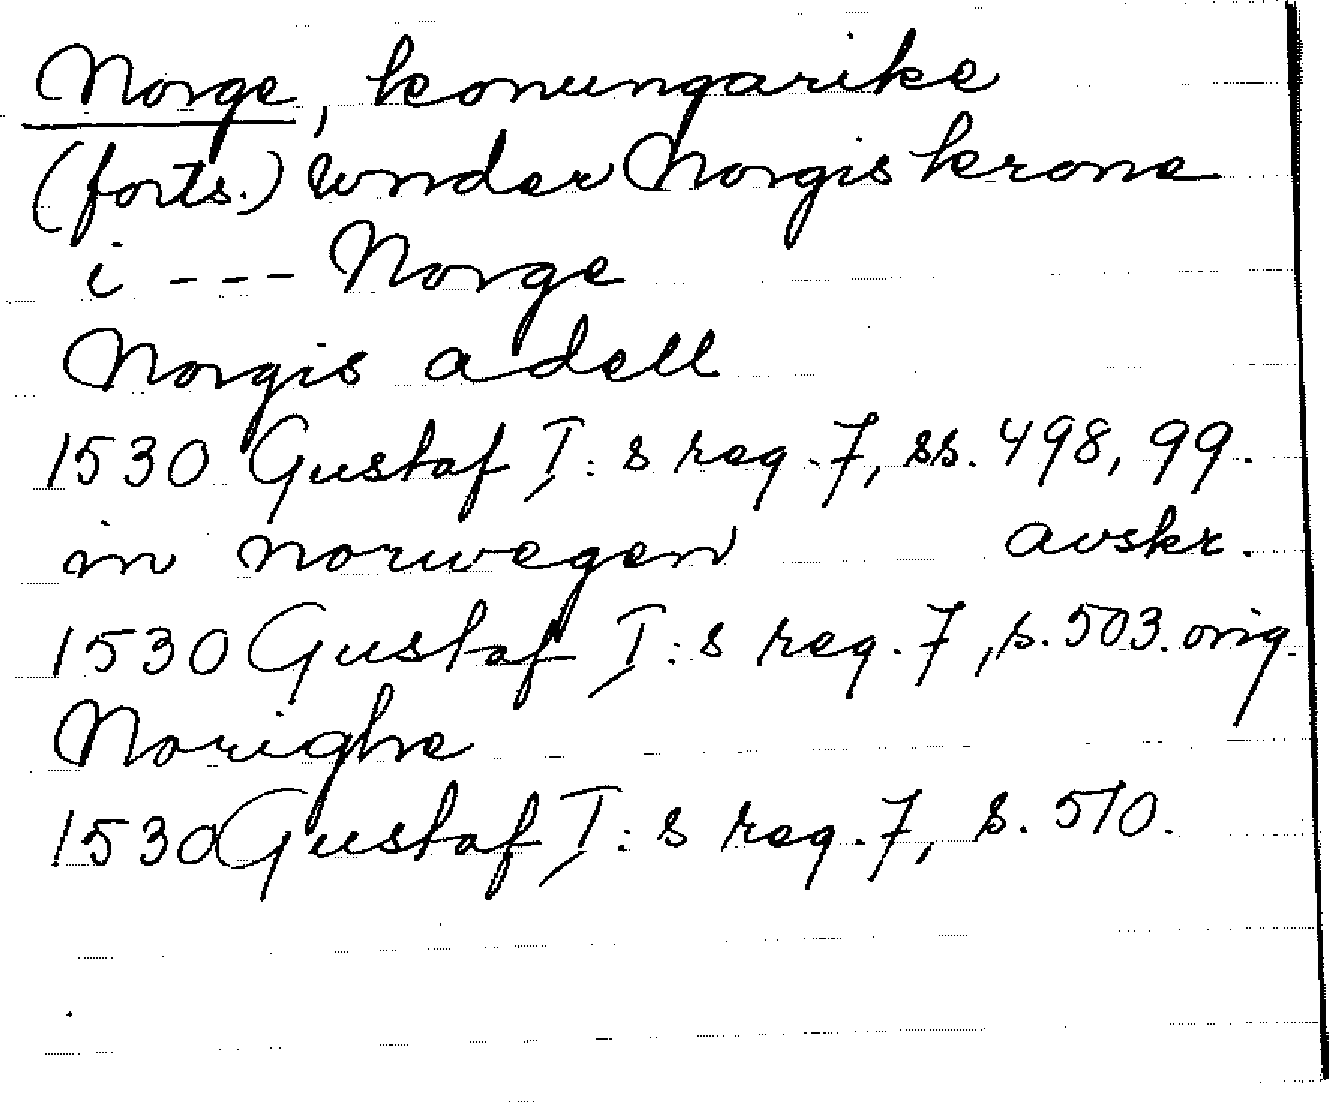 Norge, konungarike
(forts.) wnder Norgis krone
i --- Norge
Norgis adell
1530 Gustaf I:s reg. 7, ss. 498, 99.
in norwegen avskr.
1530 Gustaf I:s reg. 7, s. 503. orig.
Norighe
1530 Gustaf I:s reg. 7, s. 510.